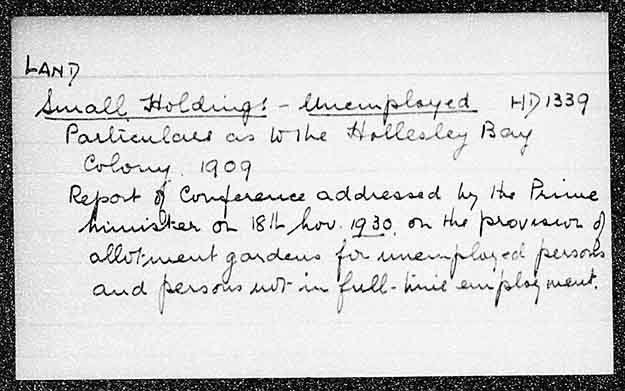 LAND
Small Holdings - Unemployed HD1339
Particulars as to the Hollesley Bay
Colony. 1909
Report of Conference addressed by the Prime
Minister on 18th Nov. 1930, on the provision of
allotment gardens for unemployed persons
and persons not in full-time employment.